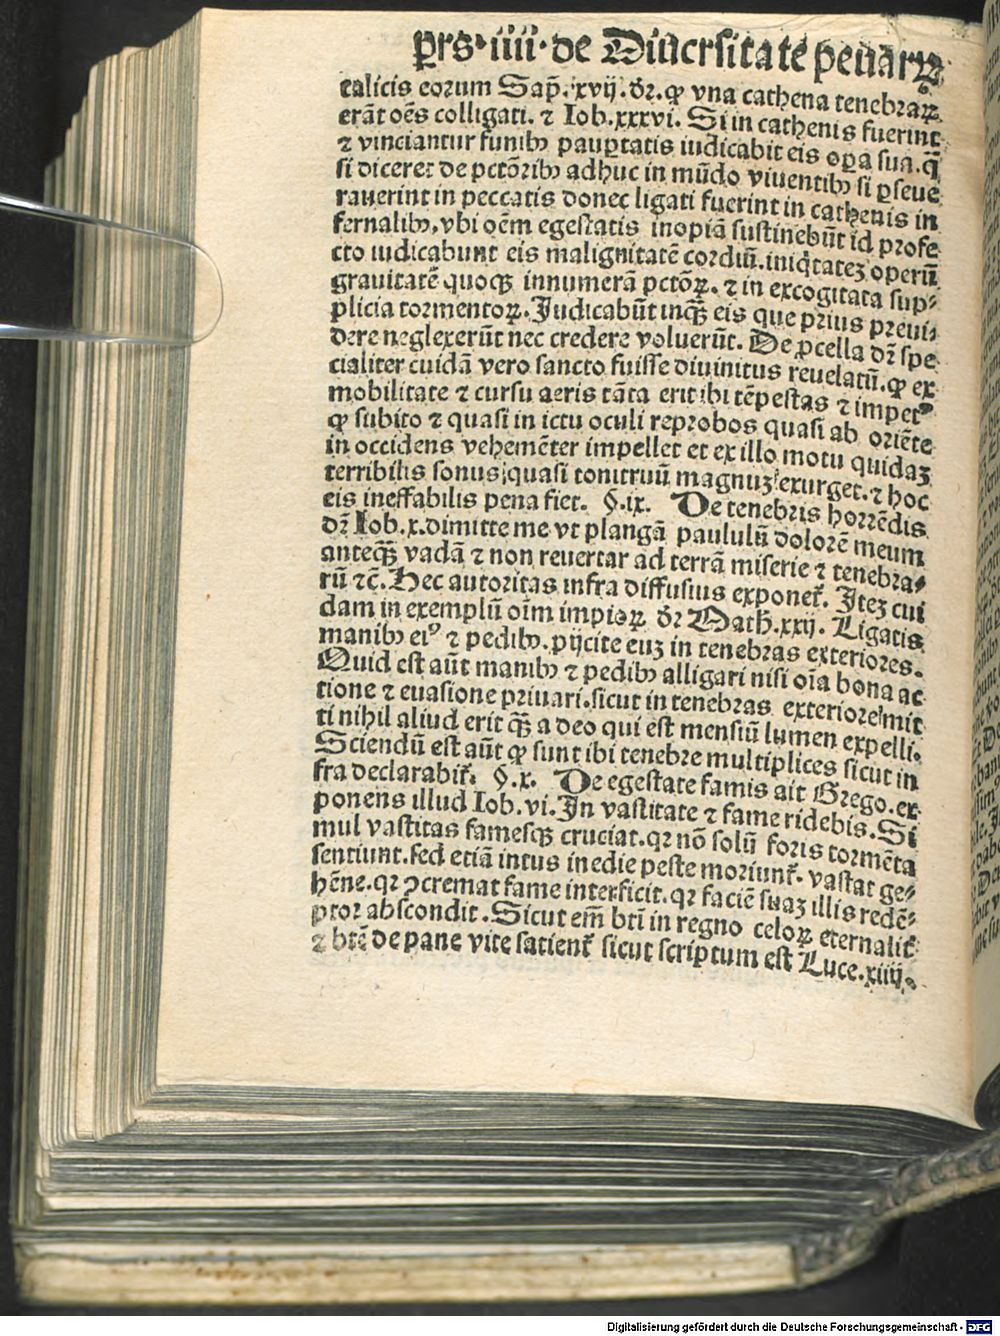 p̃rs·iiii·de Diuersitate penarꝝ
calicis eorum Sap̃. xvij. dr̃. ꝙ vna cathena tenebraꝝ
erãt oẽs colligati. ⁊ Iob. xxxvi. Si in cathenis fuerint
⁊ vinciantur funibꝰ paup̱tatis iudicabit eis oꝑa sua. q̃
si diceret de pctõribꝰ adhuc in mũdo viuentibꝰ si ꝑseue
rauerint in peccatis donec ligati fuerint in cathenis in
fernalibꝰ, vbi oẽm egestatis inopiã sustinebũt id profe
cto iudicabunt eis malignitatẽ cordiũ. iniq̃tateʒ operũ
grauitatẽ quoqꝫ innumerã pctõꝝ. ⁊ in excogitata sup⸗
plicia tormentoꝝ. Judicabũt inqꝫ̃ eis que prius preui⸗
dere neglexerũt nec credere voluerũt. De ꝓcella dr̃ spe
cialiter cuidã vero sancto fuisse diuinitus reuelatũ. ꝙ ex
mobilitate ⁊ cursu aeris tãta erit ibi tẽpestas ⁊ impetꝰ
ꝙ subito ⁊ quasi in ictu oculi reprobos quasi ab oriẽte
in occidens vehemẽter impellet et ex illo motu quidaʒ
terribilis sonus quasi tonitruũ magnuʒ exurget. ⁊ hoc
eis ineffabilis pena fiet. §. ix. De tenebris horrẽdis
dr̃ Iob. x. dimitte me vt plangã paululũ dolorẽ meum
anteqꝫ̃ vadã ⁊ non reuertar ad terrã miserie ⁊ tenebra⸗
rũ ⁊c̃. Hec autoritas infra diffusius exponet᷑. Iteʒ cui
dam in exemplũ oĩm impioꝝ dr̃ Math. xxij. Ligatis
manibꝰ eiꝰ ⁊ pedibꝰ. pijcite euʒ in tenebras exteriores.
Quid est aũt manibꝰ ⁊ pedibꝰ alligari nisi oĩa bona ac
tione ⁊ euasione priuari. sicut in tenebras exteriores mit
ti nihil aliud erit qꝫ̃ a deo qui est mensiũ lumen expelli.
Sciendũ est aũt ꝙ sunt ibi tenebre multiplices sicut in
fra declarabit᷑. §. x. De egestate famis ait Grego. ex
ponens illud Iob. vi. In vastitate ⁊ fame ridebis. Si
mul vastitas famesqꝫ cruciat. qr nõ solũ foris tormẽta
sentiunt. sed etiã intus inedie peste moriunt᷑. vastat ge⸗
hẽne. qr ꝯcremat fame interficit. qr faciẽ suaʒ illis redẽ⸗
ptor abscondit. Sicut em̃ bt̃i in regno celoꝝ eternalit᷑
⁊ bt̃ẽ de pane vite satient᷑ sicut scriptum est Luce. xiiij.
Digitalisierung gefördert durch die Deutsche Forschungsgemeinschaft - DFG